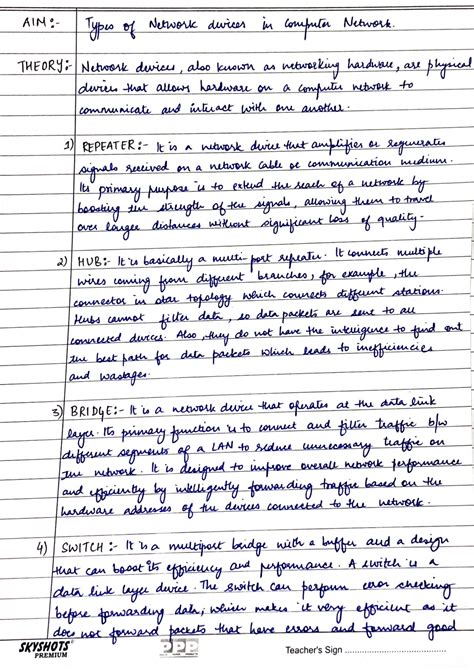 AIM:- Types of Network devices in Computer Network.
THEORY:- Network devices, also known as networking hardware, are physical
devices that allows hardware on a computer network to
communicate and interact with one another.
1) REPEATER:- It is a network device that amplifies or regenerates
signals received on a network cable or communication medium.
Its primary purpose is to extend the reach of a network by
boosting the strength of the signals, allowing them to travel
over longer distances without significant loss of quality.
2) HUB:- It is basically a multi-port repeater. It connects multiple
wires coming from different branches, for example, the
connector in star topology which connects different stations.
Hubs cannot filter data, so data packets are sent to all
connected devices. Also, they do not have the intelligence to find out
the best path for data packets which leads to inefficiencies
and wastages.
3) BRIDGE:- It is a network device that operates at the data link
layer. Its primary function is to connect and filter traffic b/w
different segments of a LAN to reduce unnecessary traffic on
the network. It is designed to improve overall network performance
and efficiently by intelligently forwarding traffic based on the
hardware addresses of the devices connected to the network.
4) SWITCH:- It is a multiport bridge with a buffer and a design
that can boost its efficiency and performance. A switch is a
data link layer device. The switch can perform error checking
before forwarding data, which makes it very efficient as it
does not forward packets that have errors and forward good
SKYSHOTS PREMIUM PPP Teacher's Sign